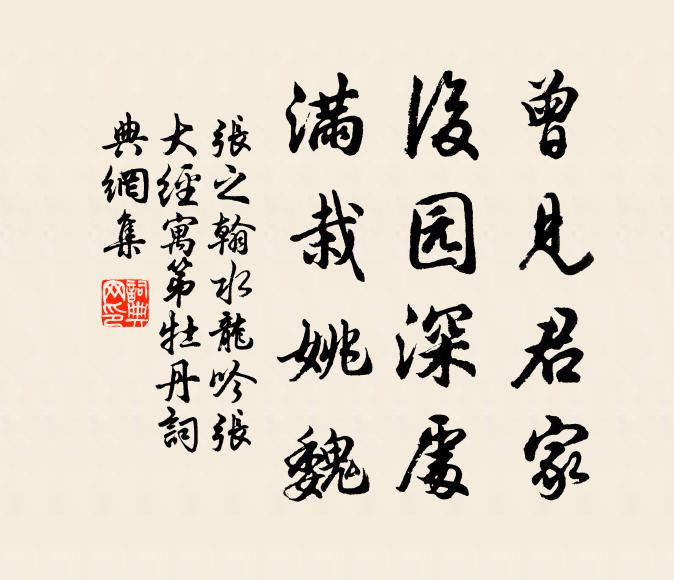 曾见君家
后园深处
满栽姚魏
張之翰水龍吟張
大經寓第牡丹詞
典網集
詞典网印